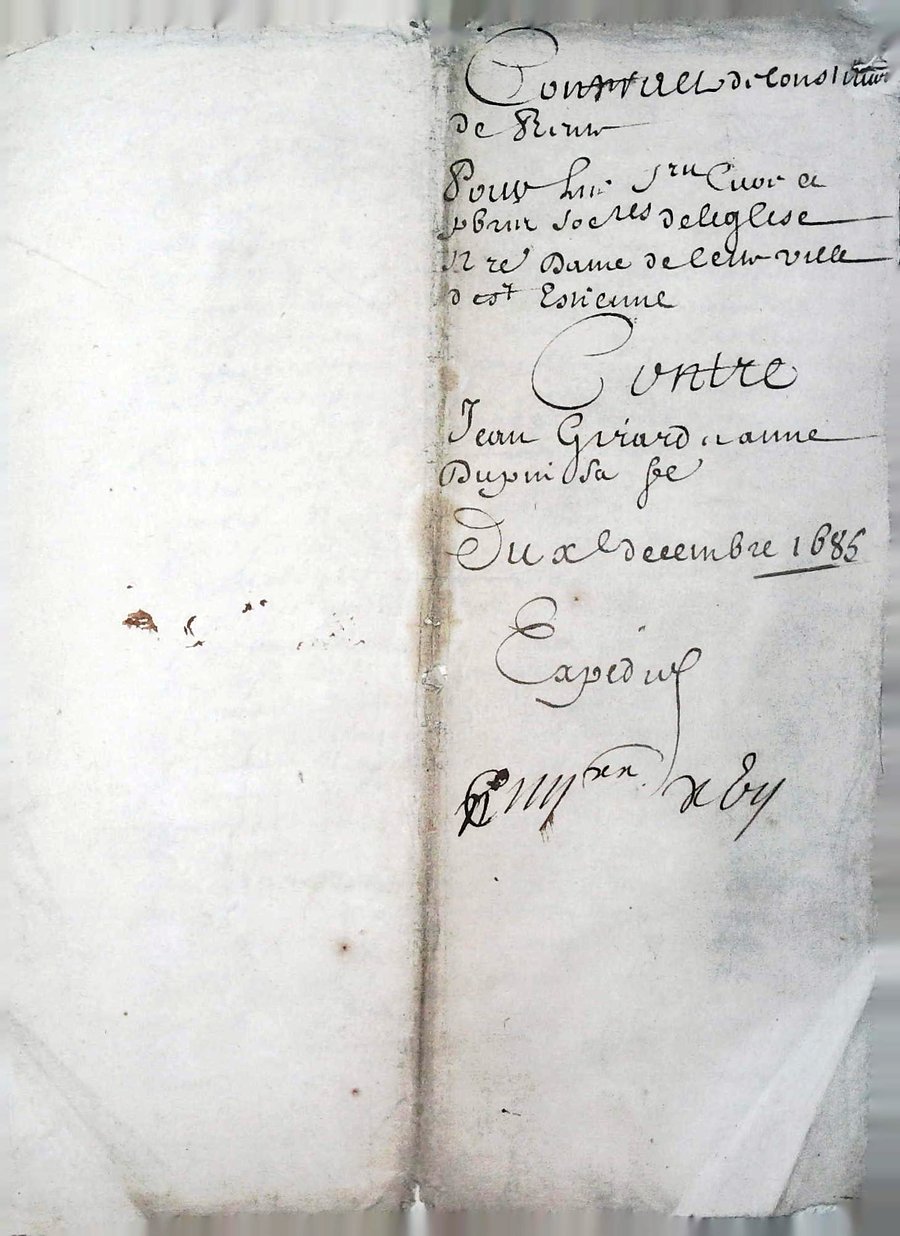 Contract de Constitution
de Rente
Pour les srs Curé et
pbres Socres de leglise
Nre Dame de cette ville
de st Estienne
Contre
Jean Girard et anne
Dupui sa fe
Du xe decembre 1685
Expedié